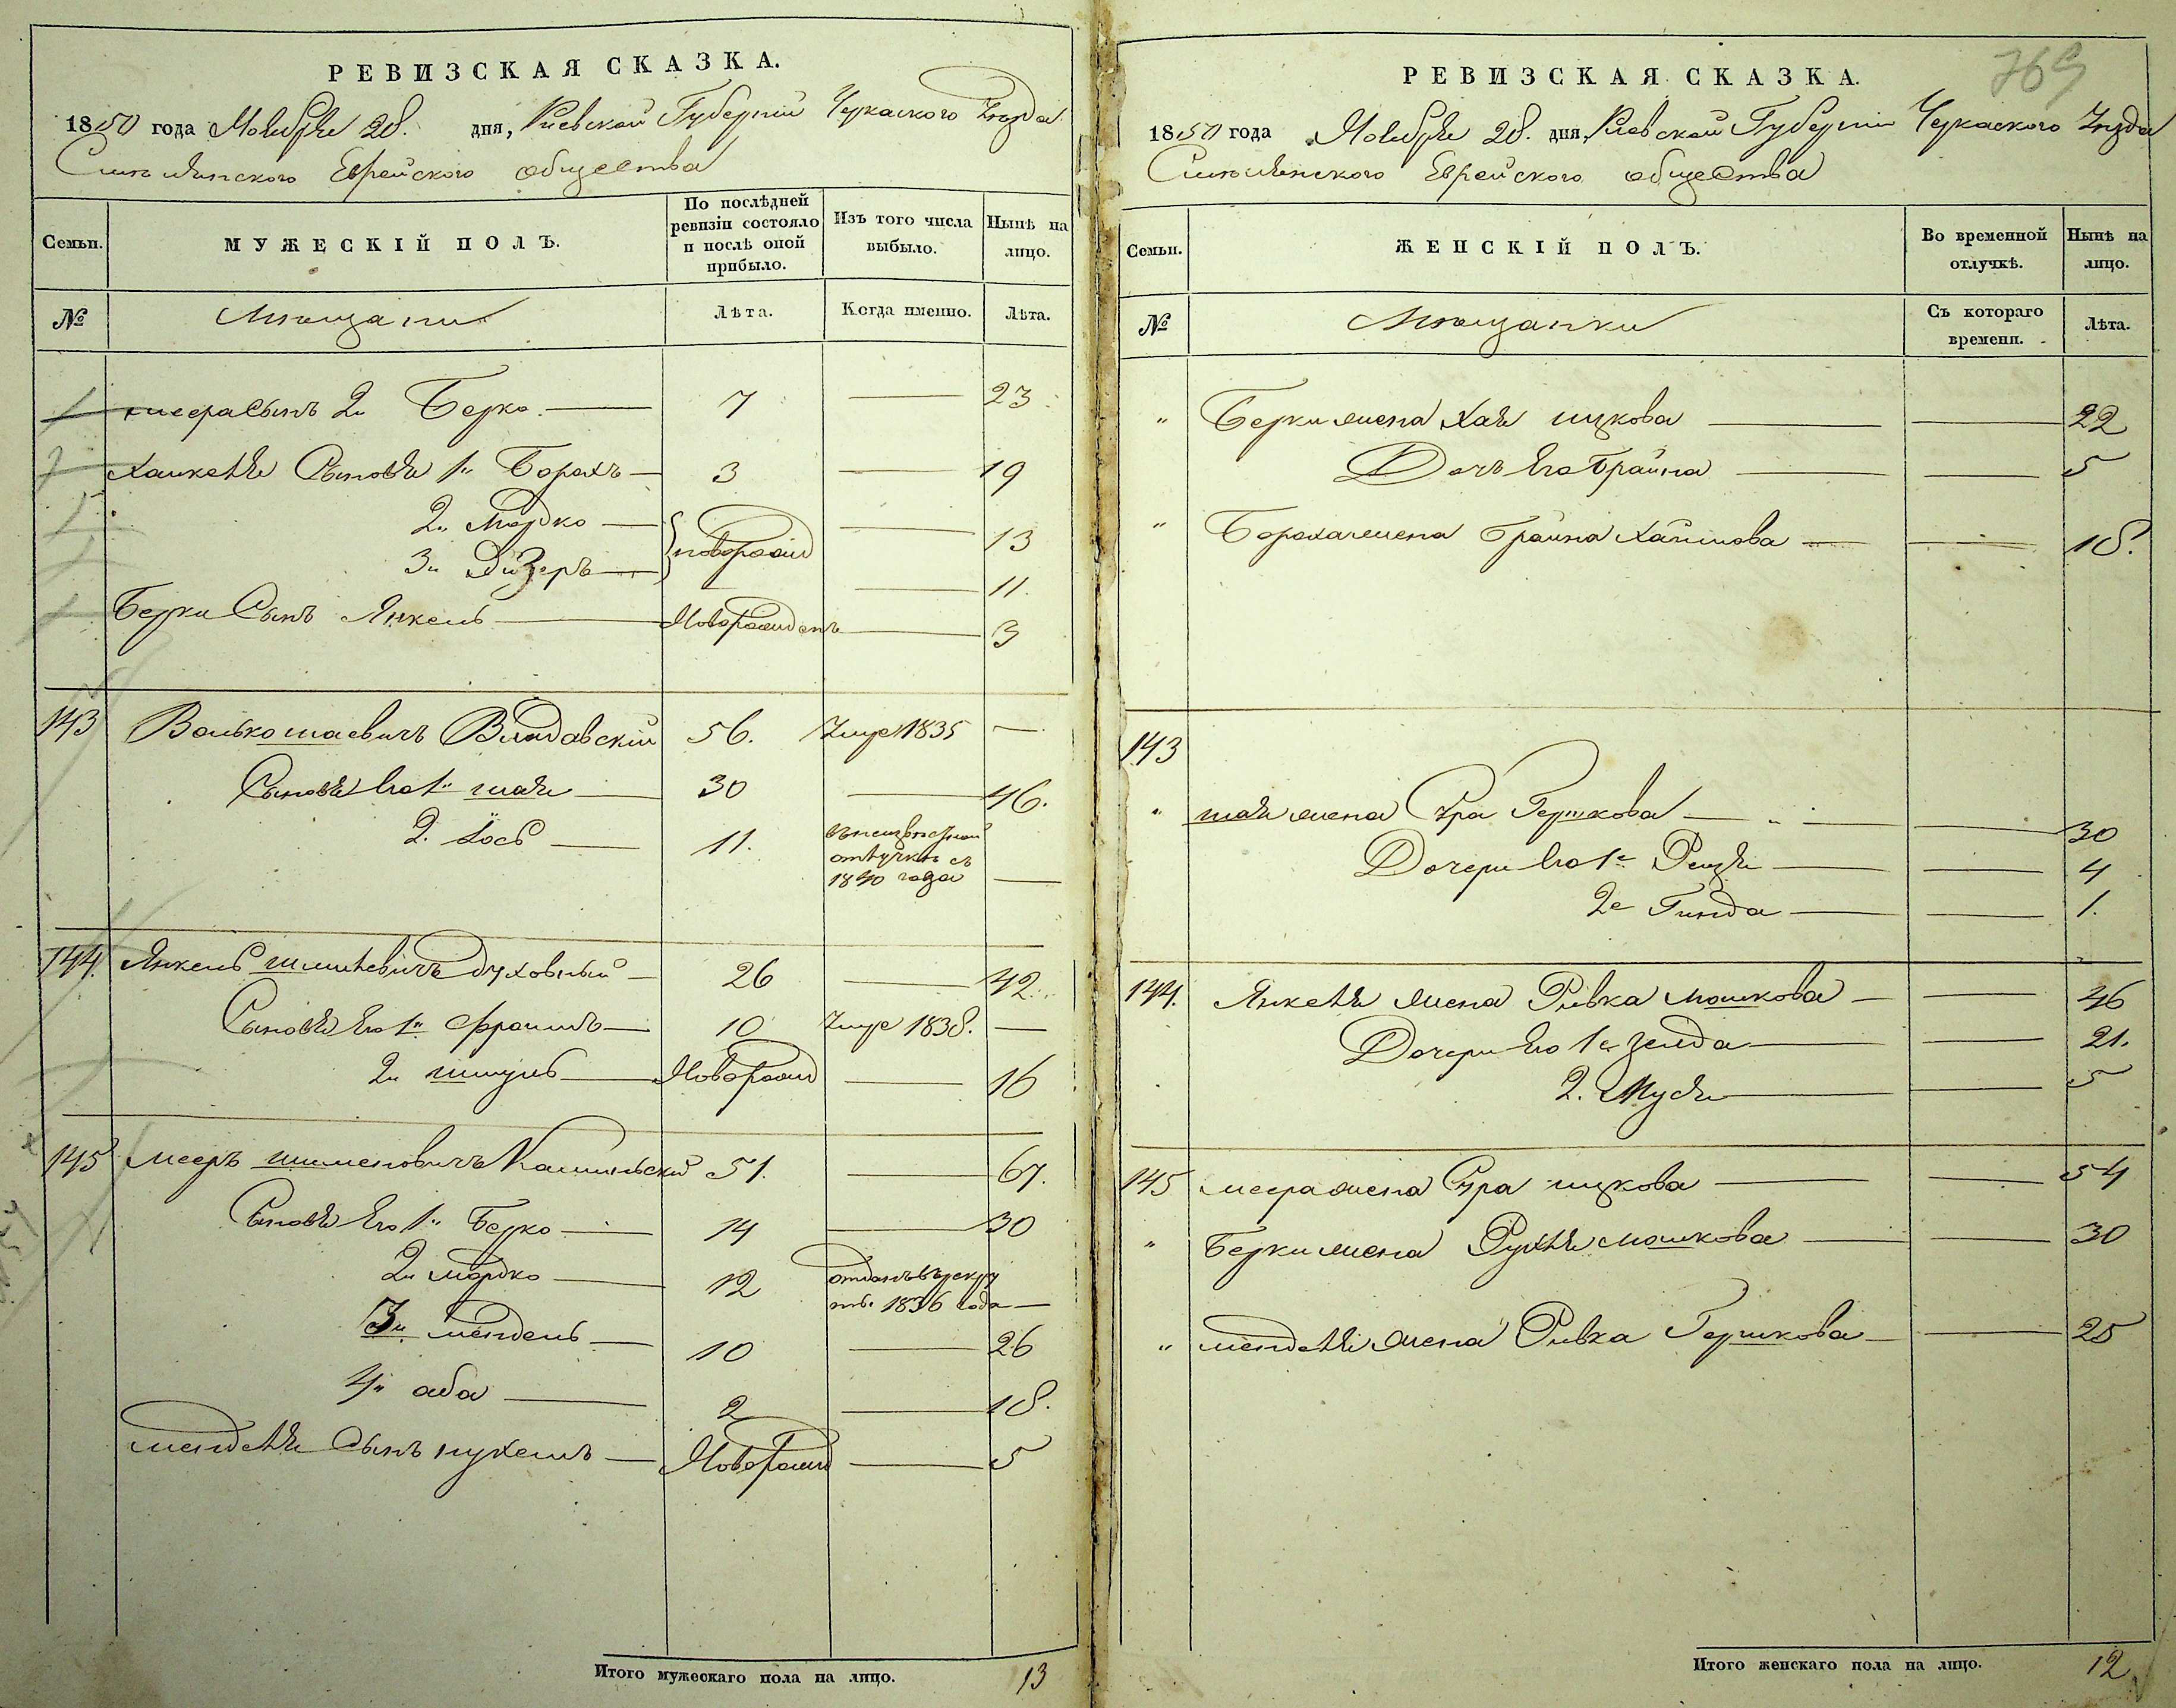 РЕВИЗСКАЯ СКАЗКА.
1850 года Ноября 28. дня, Киевской Губернии Черкаского Уезда
Смелянского Еврейского общества
Семьи.
МУЖЕСКІЙ ПОЛЪ.
По послѣдней ревизіи состояло и послѣ оной прибыло.
Изъ того числа выбыло.
Нынѣ на лицо.
№
Мещани
Лѣта.
Когда именно.
Лѣта.
меера сынъ 2й Берко 7 — 23
Сыновя 1й Борохъ 3 — 19
2й Мордко — 13
3й Лизеръ } новорожд — 11.
Берки Сынъ Янкель Новорожденъ — 3
143 Волько шаевичъ Владавский 56. Умре 1835 —
Сыновя Его 1й шая 30 — 46.
2. Иось 11. въ неизвестной отлучке съ 1840 года —
144. Янкель Духовный 26 — 42.
Сыновя Его 1й Фроимъ 10 Умре 1838. —
2й шмуль Новорожд — 16
145 меер шименовичъ 51. — 67.
Сыновя Его 1й Берко 14 — 30
2й мордко 12 отданъ въ рекруты 1836 года —
3й мендель 10 — 26
4й аба 2 — 18.
менделя Сынъ нухемъ Новорожд — 5
Итого мужескаго пола на лицо. 13
769
РЕВИЗСКАЯ СКАЗКА.
1850 года Ноября 28. дня, Киевской Губернии Черкаского Уезда
Смелянского Еврейского общества
Семьи.
ЖЕНСКІЙ ПОЛЪ.
Во временной отлучкѣ.
Нынѣ на лицо.
№
Мещанки
Съ котораго времени.
Лѣта.
" Берки жена Хая ицкова — 22
Дочь Его Брайна — 5
" Бороха жена Брайна Хаимова — 18.
143
" шая жена Сура Гершкова — 30
Дочери Его 1е Рейзя — 4
2е Гинда — 1.
144. Янкеля жена Ривка мошкова — 46
Дочери Его 1е Зелда — 21.
2. Муся — 5
145 меера жена Сура ицкова — 54
" Берки жена Рухля мошкова — 30
" менделя жена Ривка Гершкова — 25
Итого женскаго пола на лицо. 12